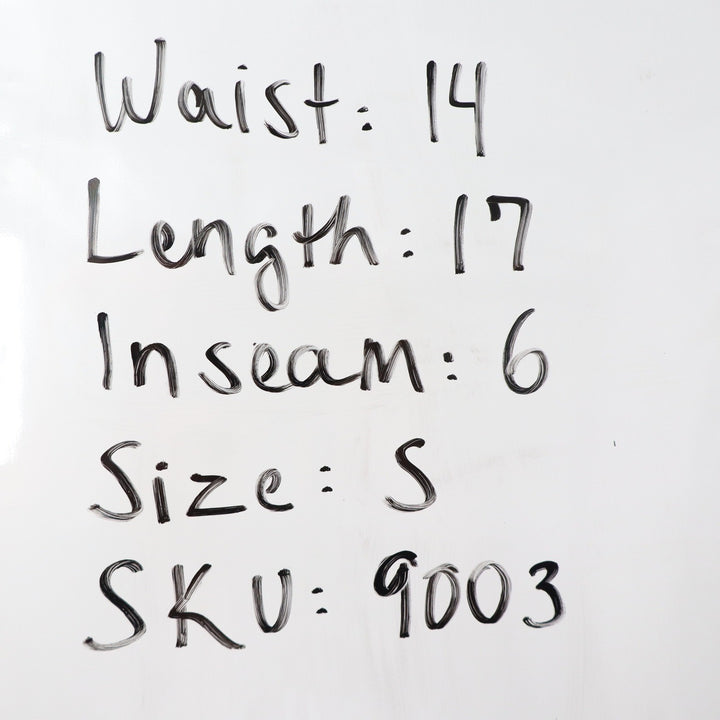 Waist: 14
Length: 17
Inseam: 6
Size: S
SKU: 9003